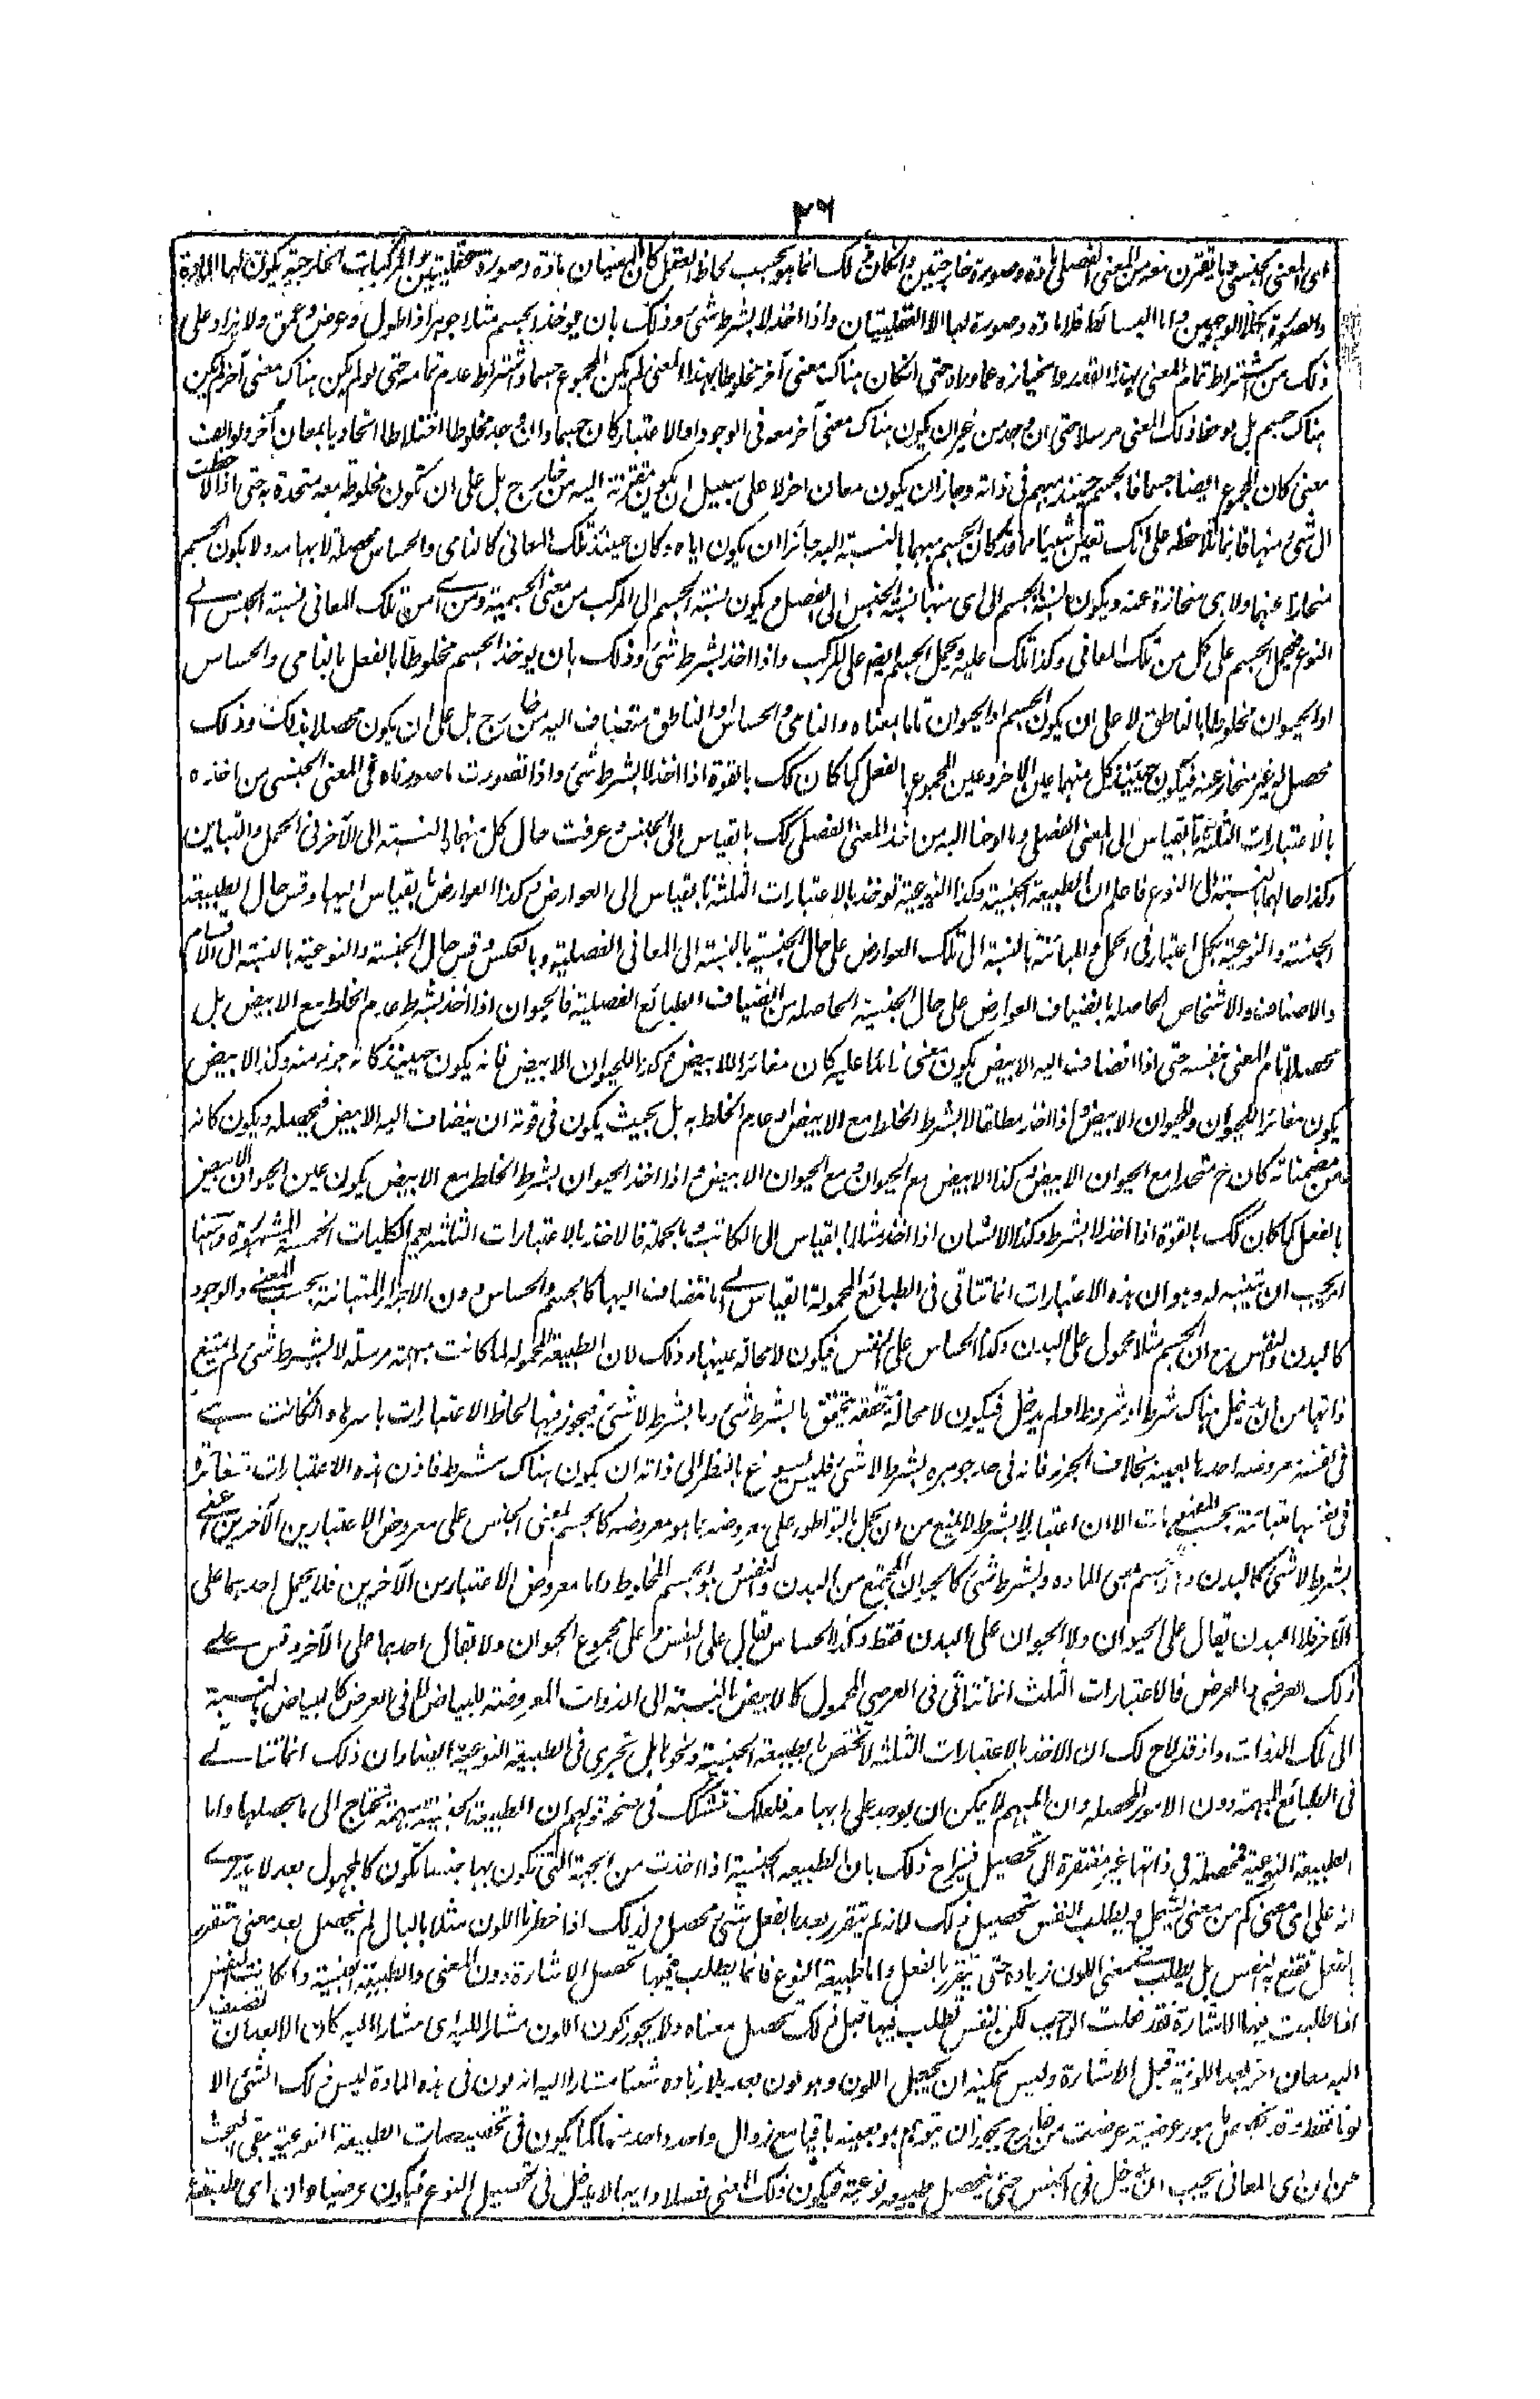 ٢٦
اى المعنى الجنسى وما يقترن معه من المعنى الفصلى مادة وصورة خارجيتين وان كان ذلك انما هو بحسب لحاظ العقل كان المعنيان مادة وصورة عقليتين والمركبات الخارجية يكون لها المادة
والصورة بكلا الوجهين واما البسائط فلا مادة وصورة لها الا العقليتان واذا اخذ لا بشرط شئ وذلك بان يوخذ الجسم مثلا جوهرا ذا طول وعرض وعمق ولا يزاد على
ذلك من اشتراط تمام المعنى بهذا القدر وانحيازه عما وراه حتى ان كان هناك معنى آخر مخلوطا بهذا المعنى لم يكن المجموع جسما واشتراط عدم تمامه حتى لو لم يكن هناك معنى آخر لم يكن
هناك جسم بل يوخذ ذلك المعنى مرسلا حتى ان وجد من غير ان يكون هناك معنى آخر معه فى الوجود او الاعتبار كان جسما وان وجد مخلوطا اختلاطا اتحاديا بمعان آخر ولو الف
معنى كان المجموع ايضا جسما فالجسم حينئذ مبهم فى ذاته وجاز ان يكون معان اخر لا على سبيل ان يكون مقترنة اليه من خارج بل على ان تكون مخلوطة معه متحدة به حتى اذا لاحظت
الى شئ منها فانما تلاحظه على انك تعين شيئا ما قد كان الجسم مبهما بالنسبة اليه جائزا ان يكون اياه وكان حينئذ تلك المعانى كالنامى والحساس محصلة لابهامه ولا يكون الجسم
منحازا عنها ولا هى منحازة عنه ويكون نسبة الجسم الى اى منها نسبة الجنس الى الفصل ويكون نسبة الجسم الى المركب من معنى الجسمية ومن اى من تلك المعانى نسبة الجنس الى
النوع فيحمل الجسم على كل من تلك المعانى وكذا تلك عليه ويحمل الجسم ايضا على المركب واذا اخذ بشرط شئ وذلك بان يوخذ الجسم مخلوطا بالفعل بالنامى والحساس
او الحيوان مخلوطا بالناطق لا على ان يكون الجسم او الحيوان تاما بمعناه والنامى والحساس او الناطق منضاف اليه من خارج بل على ان يكون محصلا بذلك وذلك
محصل له غير منحاز عنه فيكون حينئذ كل منهما عين الآخر وعين المجموع بالفعل كما كان كك بالقوة اذا اخذ لا بشرط شئ واذا تصورت ما صورناه فى المعنى الجنسى من اخذه
بالاعتبارات الثلثة بالقياس الى المعنى الفصلى وما اوحينا اليه من اخذ المعنى الفصلى كك بالقياس الى الجنس وعرفت حال كل منهما بالنسبة الى الآخر فى الحمل والتباين
وكذا حالهما بالنسبة الى النوع فاعلم ان الطبيعة الجنسية وكذا النوعية توخذ بالاعتبارات الثلثة بالقياس الى العوارض وكذا العوارض بالقياس اليها وقس حال الطبيعة
الجنسية والنوعية بكل اعتبار فى الحمل والمباينة بالنسبة الى تلك العوارض على حال الجنسية بالنسبة الى المعانى الفصلية وبالعكس وقس حال الجنسية والنوعية بالنسبة الى الاقسام
والاصناف والاشخاص الحاصلة بانضياف العوارض على حال الجنسية الحاصلة من انضياف الطبائع الفصلية فالحيوان اذا اخذ بشرط عدم الخلط مع الابيض بل
محصلا تام المعنى بنفسه حتى اذا انضاف اليه الابيض يكون معنى زائدا عليه كان مغائرا للابيض وكذا للحيوان الابيض فانه يكون حينئذ كانه جزء منه وكذا الابيض
يكون مغائرا للحيوان والحيوان الابيض واذا اخذ مطلقا لا بشرط الخلط مع الابيض او عدم الخلط به بل بحيث يكون فى قوته ان ينضاف اليه الابيض فيحصله ويكون كانه
من مضمناته كان ح متحدا مع الحيوان الابيض وكذا الابيض مع الحيوان ومع الحيوان الابيض واذا اخذ الحيوان بشرط الخلط مع الابيض يكون عين الحيوان الابيض
بالفعل كما كان كك بالقوة اذا اخذ لا بشرط وكذا الانسان اذا اخذ مثلا بالقياس الى الكاتب وبالجملة فالاخذ بالاعتبارات الثلثة يعم الكليات الخمسة المشهورة وههنا
امر يجب ان يتنبه له وهو ان هذه الاعتبارات انما تتاتى فى الطبائع المحمولة بالقياس الى ما تنضاف اليها كالجسم والحساس دون الاجزاء المتباينة بحسب المعنى والوجود
كالبدن والنفس مع ان الجسم مثلا محمول على البدن وكذا الحساس على النفس فيكون لا محالة عينها وذلك لان الطبيعة المحمولة لما كانت مبهمة مرسلة لا بشرط شئ لم تمتنع
ذاتها من ان يدخل هناك شرط او شروط او لم يدخل فيكون لا محالة متحققة بتحقق ما بشرط شئ وما بشرط لا شئ فيجوز فيها لحاظ الاعتبارات باسرها وان كانت هى
فى نفسها معروضة احدها بعينه بخلاف الجزء فانه فى حد جوهره بشرط لا شئ فليس يسوغ بالنظر الى ذاته ان يكون هناك شرط فاذن هذه الاعتبارات متغائرة
فى نفسها متباينة بحسب المفهومات الا ان اعتبار لا بشرط لا يمنع من ان يحمل بالتواطؤ على معروضه ما هو معروضه كالجسم بمعنى الجنس على معروض الاعتبارين الآخرين اعنى
بشرط لا شئ كالبدن والجسم بمعنى المادة وبشرط شئ كالحيوان المجتمع من البدن والنفس وهو الجسم المخلوط واما معروض الاعتبارين الآخرين فلا يحمل احدهما على
الآخر فلا البدن يقال على الحيوان ولا الحيوان على البدن فقط وكذا الحساس يقال على النفس وعلى مجموع الحيوان ولا يقال احدهما على الآخر وقس على
ذلك العرضى والعرض فالاعتبارات الثلث انما تتاتى فى العرضى المحمول كالابيض بالنسبة الى الذوات المعروضة للبياض لا فى العرض كالبياض بالنسبة
الى تلك الذوات واذ قد لاح لك ان الاخذ بالاعتبارات الثلثة لا تختص بالطبيعة الجنسية ونحوها بل تجرى فى الطبيعة النوعية ايضا وان ذلك انما تتاتى
فى الطبائع المبهمة دون الامور المحصلة وان المبهم لا يمكن ان يوجد على ابهامه فلعلك تتشكك فى صحة قولهم ان الطبيعة الجنسية مبهمة تحتاج الى ما يحصلها واما
الطبيعة النوعية فمحصلة فى ذاتها غير مفتقرة الى تحصيل فيزاح ذلك بان الطبيعة الجنسية اذا اخذت من الجهة التى تكون بها جنسا تكون كالمجهول بعد لا يدرى
انه على اى معنى كم من معنى يشتمل ويطلب النفس تحصيل ذلك لانه لم يتقرر بعد بالفعل شئ محصل ولذلك اذا خطرنا اللون مثلا بالبال لم يحصل بعد معنى متقرر
بالفعل تقنع به النفس بل يطلب فى معنى اللون زيادة حتى يتقرر بالفعل واما طبيعة النوع فانما يطلب فيها تحصل الاشارة دون المعنى والطبيعة الجنسية وان كانت النفس
اذا طلبت فيها الاشارة فقد فعلت الواجب لكن النفس تطلب فيها قبل ذلك تحصل معناه ولا يجوز كون اللون مشارا اليه اى مشار اليه كان الا بعد ان تضيف
اليه معان اخر بعد اللونية قبل الاشارة وليس يمكنه ان يجعل اللون وهو لون بعد بلا زيادة شيئا مشارا اليه انه لون فى هذه المادة ليس ذلك الشئ الا
لونا فقط وقد يخصص بامور عرضية عرضت من خارج يجوز ان يتوهم هو بعينه باقيا مع زوال واحد واحد منها كما يكون فى تخصيصات الطبيعة النوعية بقى البحث
عن ان اى المعانى يجب ان يدخل فى الجنس حتى يحصل طبيعة نوعية فيكون ذلك المعنى فصلا وايها لا يدخل فى تحصيل النوع فيكون عرضيا وان اى طبيعة